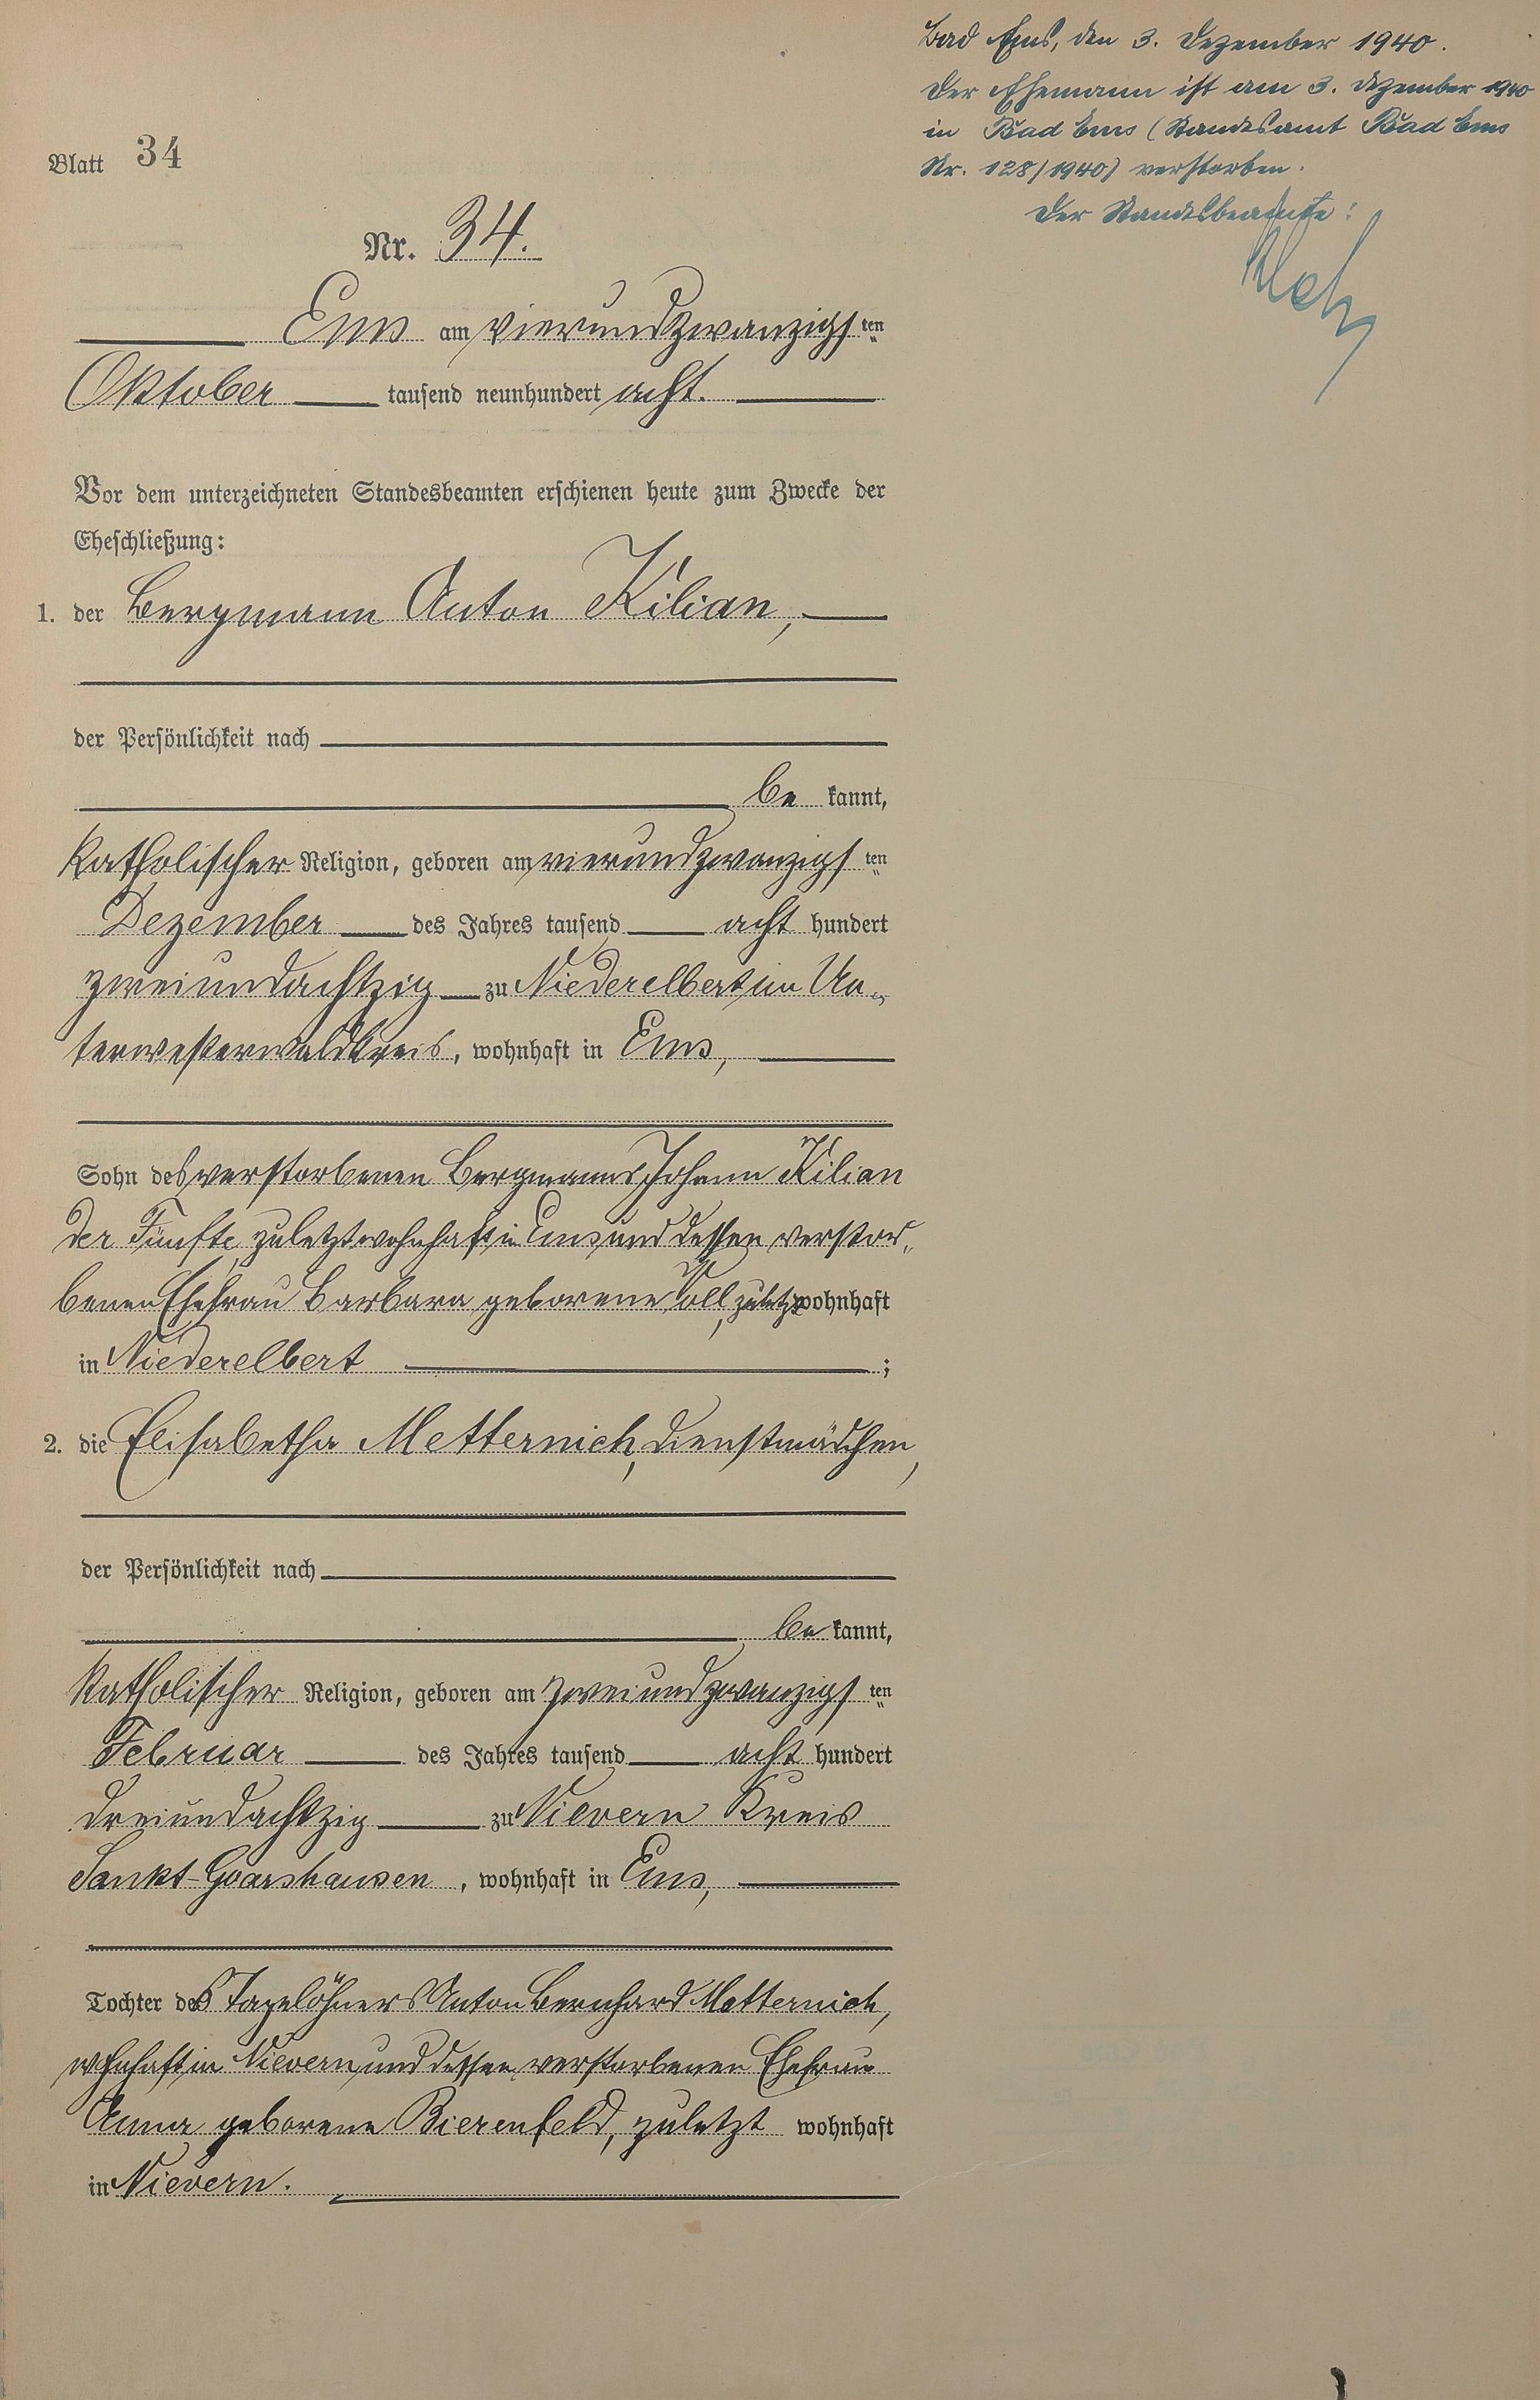 Bad Ems, den 3. Dezember 1940.
Der Ehemann ist am 3. Dezember 1940
in Bad Ems (Standesamt Bad Ems
Nr. 128/1940) verstorben.
Der Standesbeamte:
Blatt 34
Nr. 34.
Ems am vierundzwanzigsten
Oktober tausend neunhundert acht.
Vor dem unterzeichneten Standesbeamten erschienen heute zum Zwecke der
Eheschließung:
1. der Bergmann Anton Kilian,
der Persönlichkeit nach
be kannt,
katholischer Religion, geboren am vierundzwanzigsten
Dezember des Jahres tausend acht hundert
zweiundachtzig zu Niederelbert im Un„
terwesterwaldkreis, wohnhaft in Ems,
Sohn des verstorbenen Bergmanns Johann Kilian
der Fünfte, zuletzt wohnhaft in Ems und dessen verstor„
benen Ehefrau Barbara geborene, zuletzt wohnhaft
in Niederelbert ;
2. die Elisabetha Metternich, Dienstmädchen,
der Persönlichkeit nach
be kannt,
katholischer Religion, geboren am zweiundzwanzigsten
Februar des Jahres tausend acht hundert
dreiundachtzig zu Nievern Kreis
Sankt-Goarshausen, wohnhaft in Ems,
Tochter des Tagelöhners Anton Bernhard Metternich,
wohnhaft in Nievern und dessen verstorbenen Ehefrau
Anna geborene Bierenfeld, zuletzt wohnhaft
in Nievern.